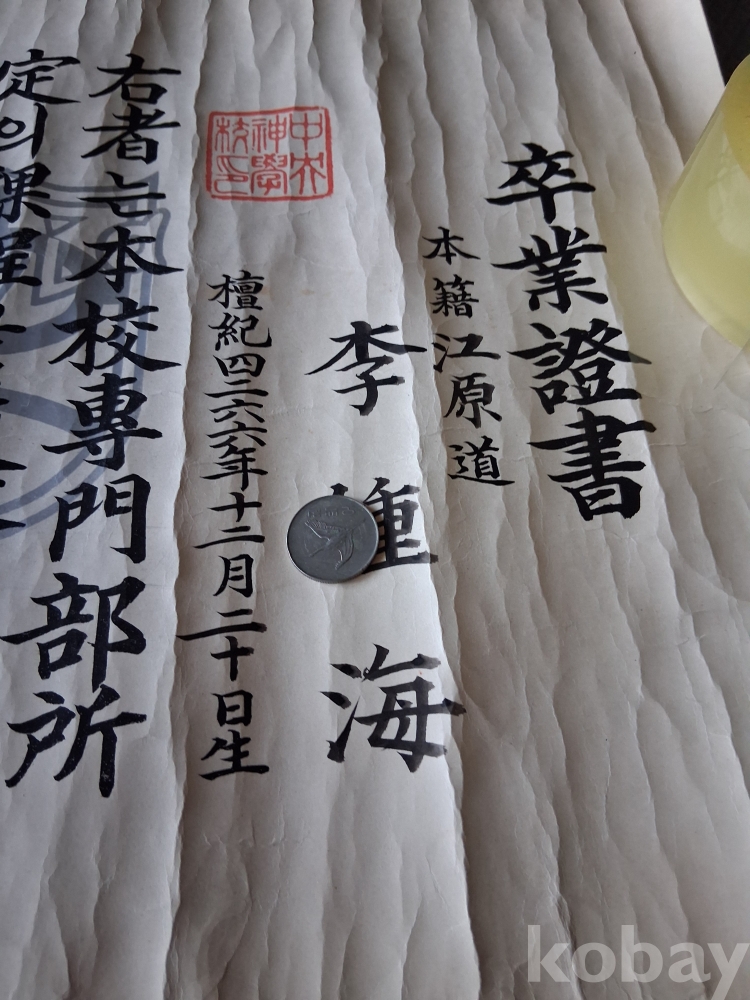 卒業證書
本籍江原道
李 海
中央
神學
校印
檀紀四二六六年十二月二十日生
右者는本校專門部所
定의課程
kobay